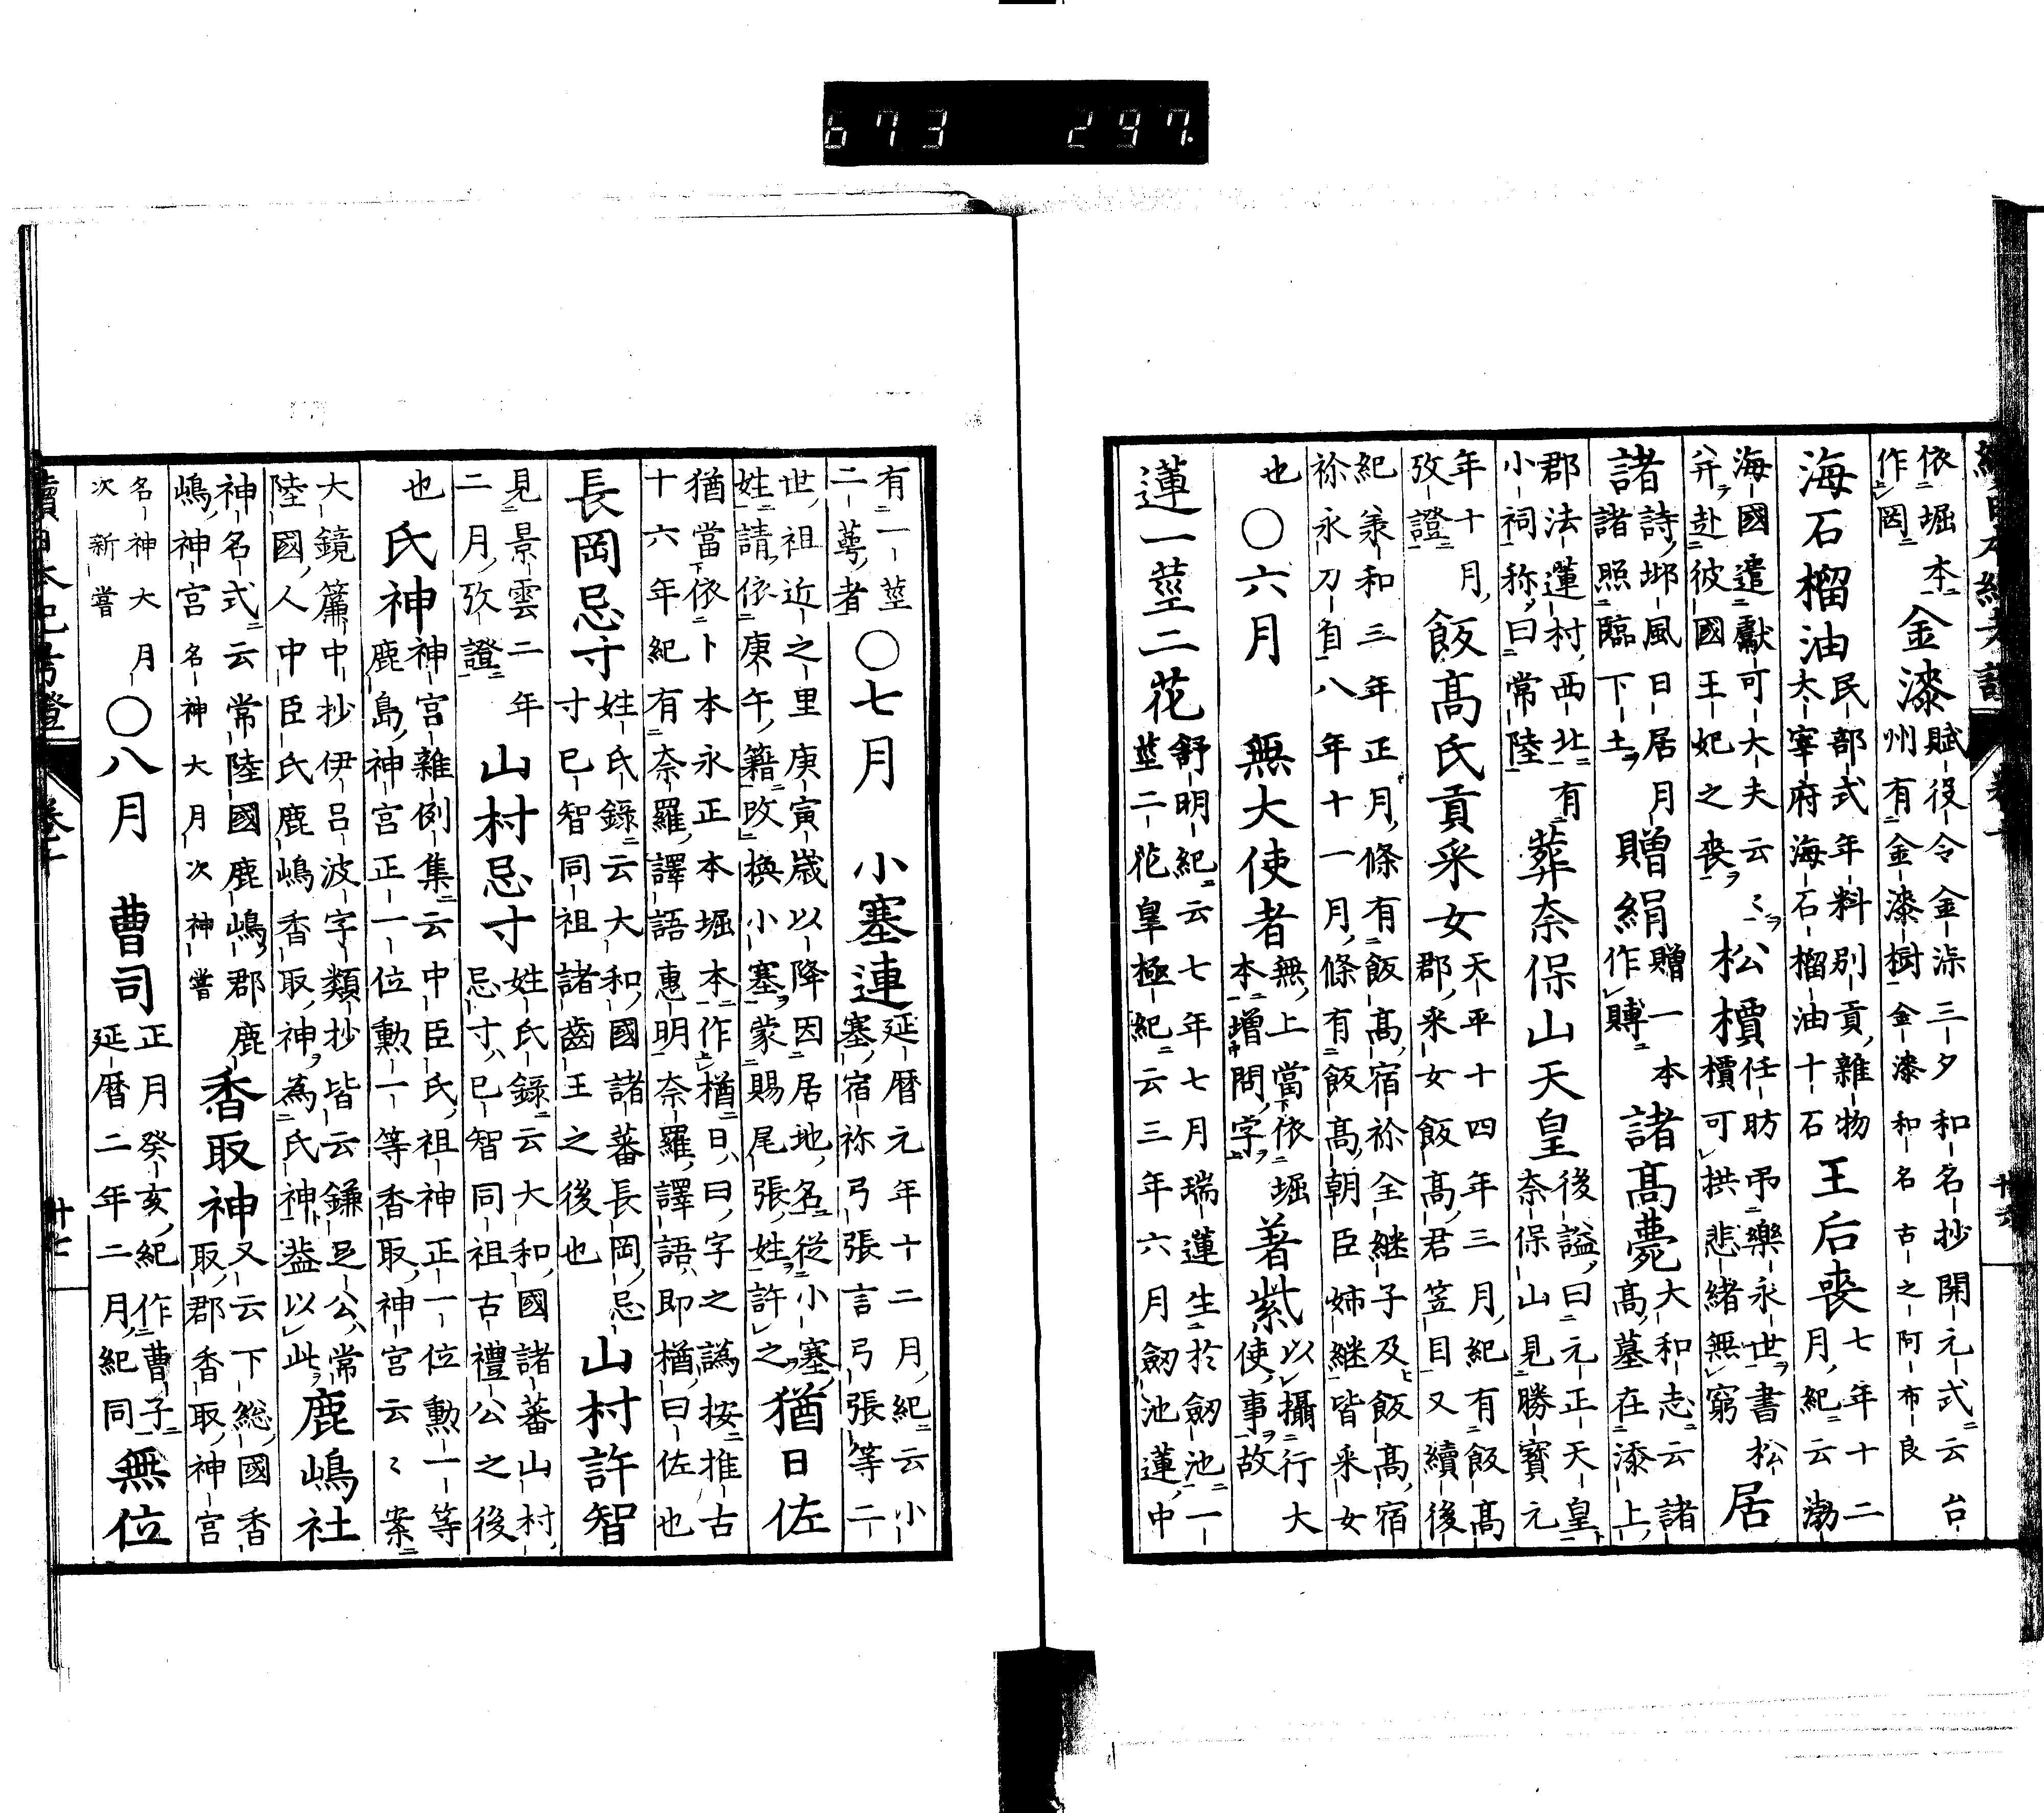 673 297
依堀本金漆賦役令金漆三夕和名抄開元式云台
作罔州有金漆樹金漆和名古之阿布良
海石榴油民部式年料別貢雜物王后喪七年十二
太宰府海石榴油十石月紀云渤
海國遣獻可大夫云〻松櫝任昉弔樂永世書松居
幷赴彼國王妃之喪櫝可拱悲緒無窮
諸詩邶風日居月贈絹贈一本諸髙薨大和志云諸
諸照臨下土作賻髙墓在漆上
郡法蓮村西北有葬奈保山天皇後謚曰元正天皇
小祠称曰常陸奈保山見勝寳元
年十月飯髙氏貢采女天平十四年三月紀有飯髙
攷證郡采女飯髙君笠目又續後
紀羕和三年正月條有飯髙宿祢全継子及飯髙宿
祢永刀自八年十一月條有飯髙朝臣姉継皆采女
也〇六月無大使者無上當依堀著紫以攝行大
本增問字使事故
蓮一莖二花舒明紀云七年七月瑞蓮生於劔池一
莖二花皇極紀云三年六月劔池蓮中
有一莖〇七月小塞連延暦元年十二月紀云小
二蕚者塞宿祢弓張言弓張等二
世祖近之里庚寅歳以降因居地名從小塞猶日佐
姓請依庚午籍改換小塞蒙賜尾張姓許之
猶當依卜本永正本堀本作楢日曰字之譌按推古
十六年紀有奈羅譯語惠明奈羅譯語即楢曰佐也
長岡忌寸姓氏録云大和國諸蕃長岡忌山村許智
寸已智同祖諸齒王之後也
見景雲二年山村忌寸姓氏録云大和國諸蕃山村
二月攷證忌寸已智同祖古禮公之後
也氏神神宮雜例集云中臣氏祖神正一位勲一等
鹿島神宮正一位勲一等香取神宮云〻案
大鏡篇中抄伊呂波字類抄皆云鎌足公常鹿嶋社
陸國人中臣氏鹿嶋香取神為氏神葢以此
神名式云常陸國鹿嶋郡鹿香取神又云下総國香
嶋神宮名神大月次神嘗取郡香取神宮
名神大月〇八月曹司正月癸亥紀作曹子無位
次新嘗延暦二年二月紀同